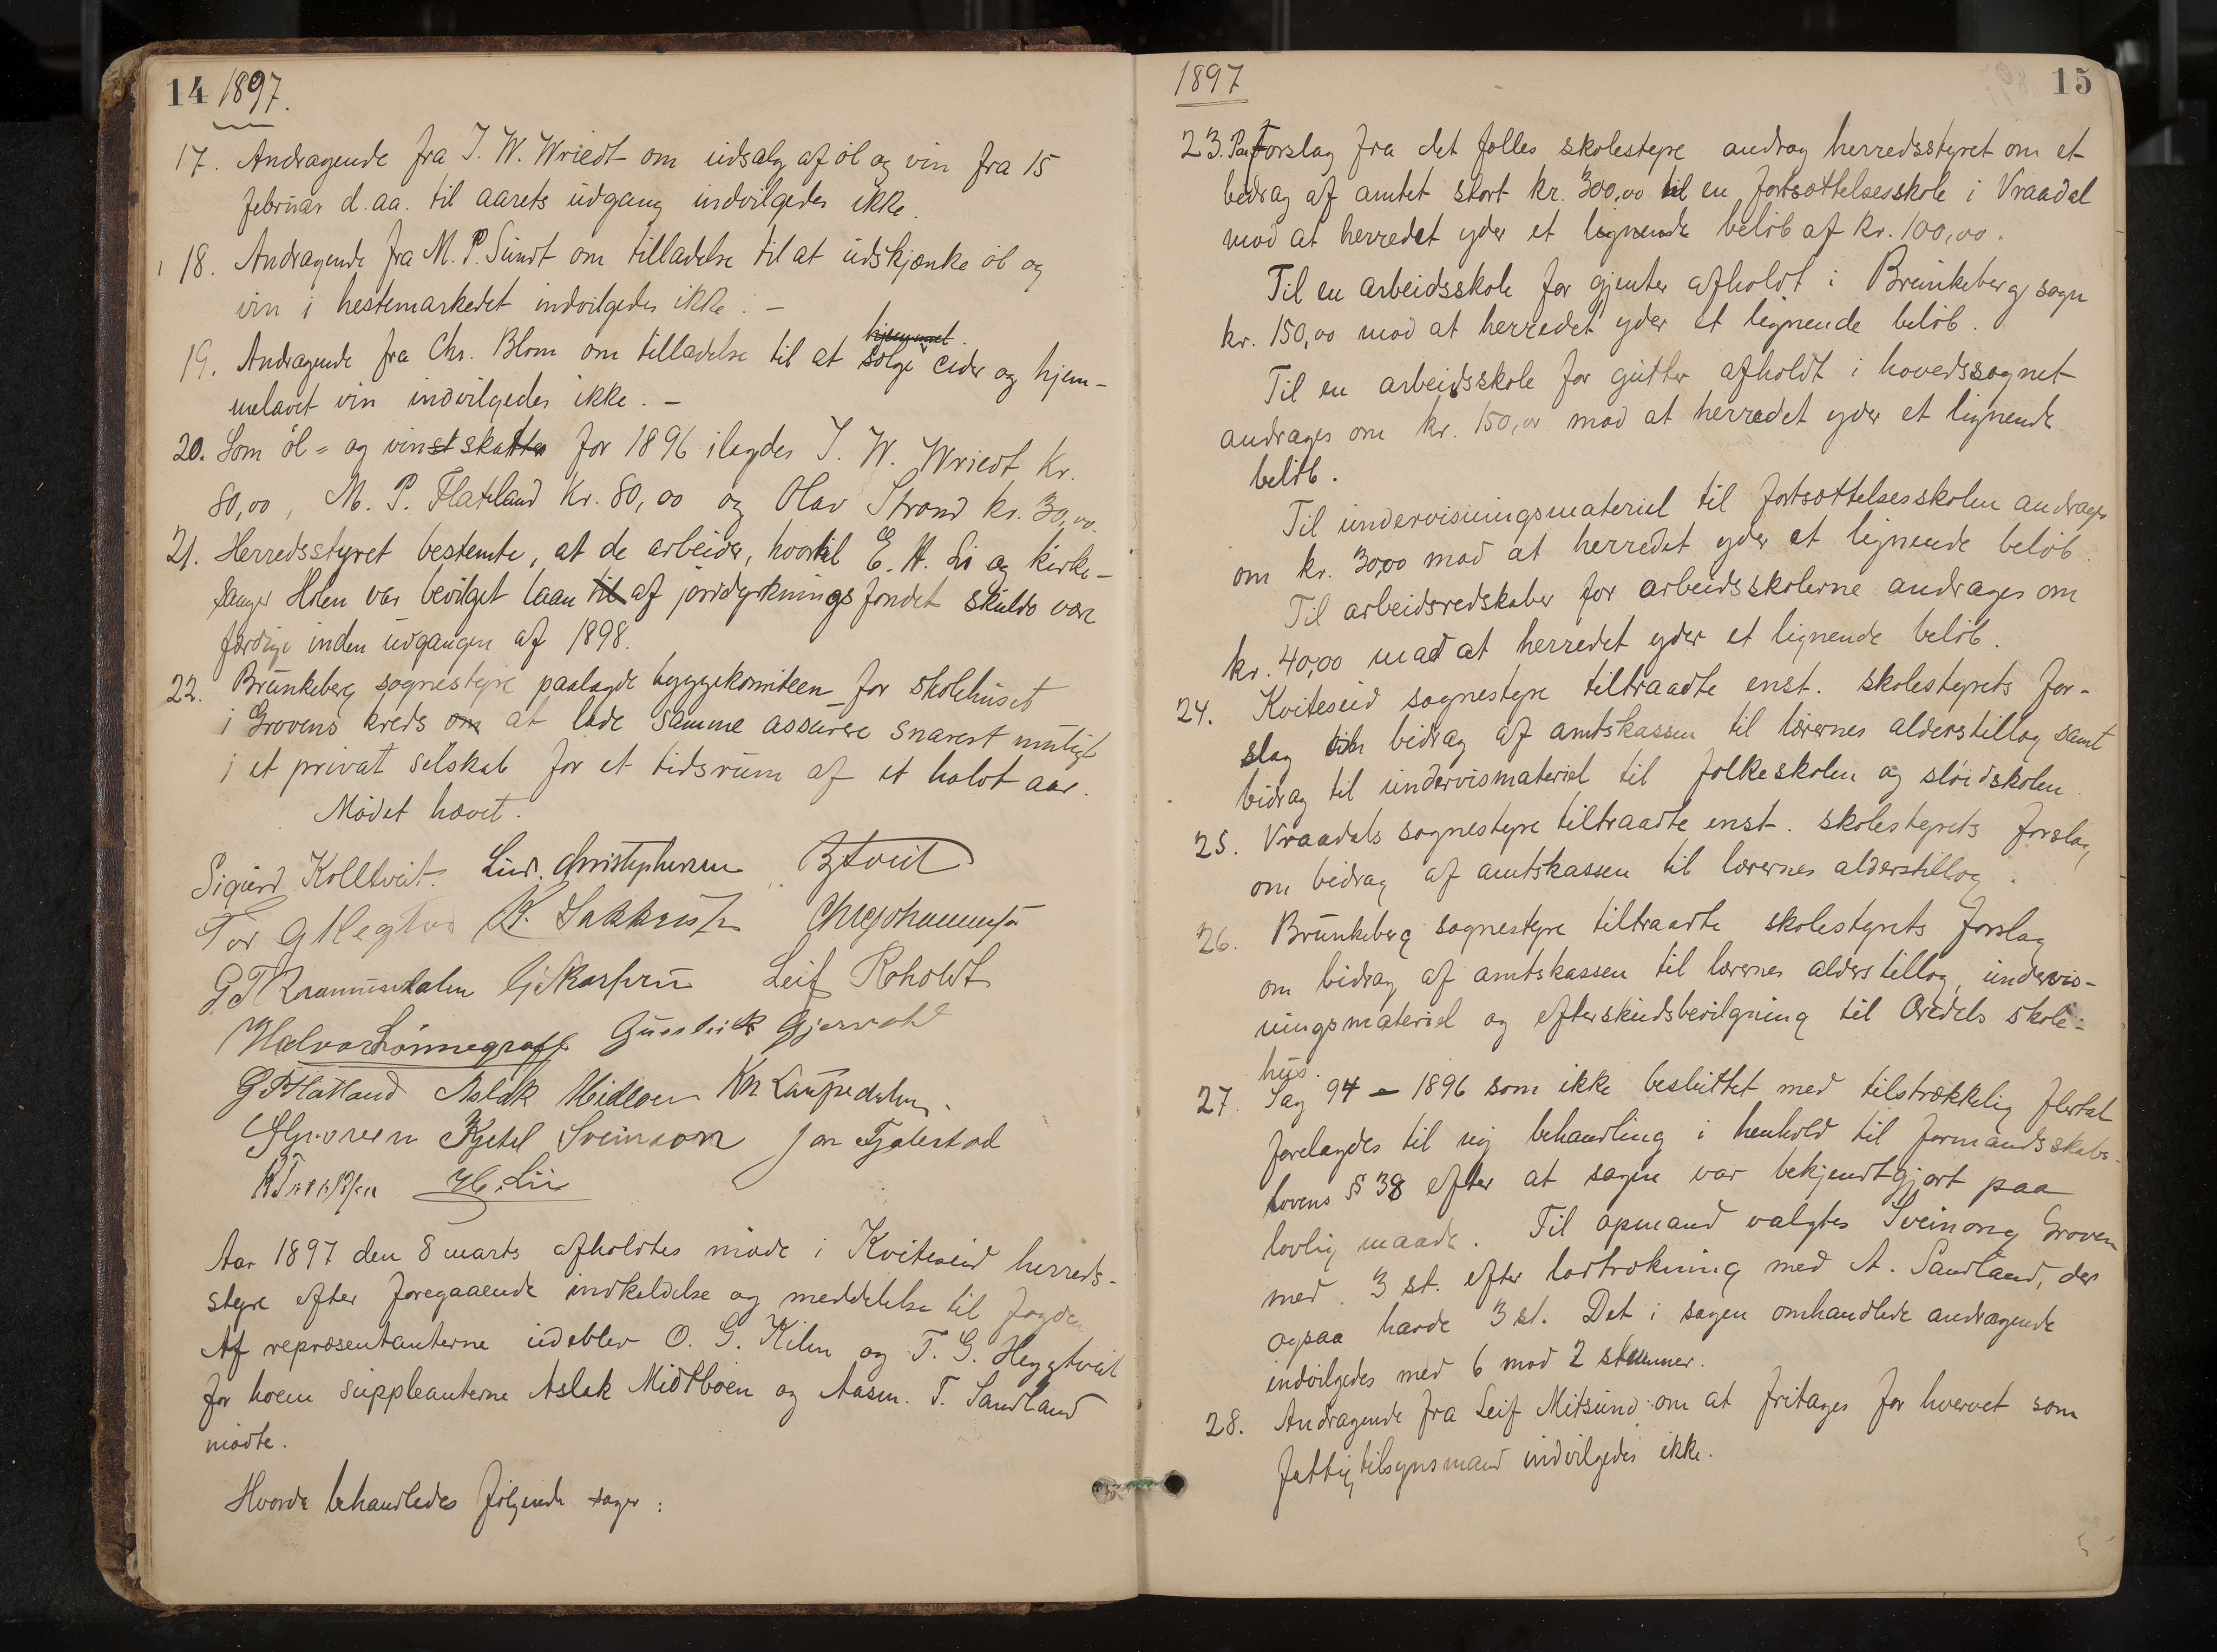 14 1897.
17. Andragende fra J. W. Wriedt om udsalg af öl og vin fra 15
februar d. aa. til aarets udgang indvilgedes ikke.
18. Andragende fra M. P. Sundt om tilladelse til at udskjænke öl og
vin i hestemarkedet indvilgedes ikke. –
hjemmel.
19. Andragende fra Chr. Blom om tilladelse til at sölge cider og hjem-
melavet vin indvilgedes ikke. –
20. Som öl = og vinstskatte for 1896 ilagdes J. W. Wriedt Kr.
80,00, M. P. Flatland Kr. 80,00 og Olav Strand kr. 30,00.
21. Herredsstyret bestemte, at de arbeider, hvortil E. H. Li og kirke-
sanger Holen var bevilget laan til af jorddyrkningsfondet skulde være
færdige inden udgangen af 1898.
22. Brunkeberg sognestyre paalagde byggekomiteen for skolehuset
i Grovens kreds om at lade samme assurere snarest muligt
i et privat selskab for et tidsrum af et halvt aar.
Mödet hævet.
Sigurd Kolltveit. Lud. Christophersen
Tor G
Leif Roholdt
Halvor Lönnegraff Gunleik Gjervold
G P Flatland Aslak Midtbøen Kn.
Kjetel Sveinson Jon Fjalestad
H. Lii
Aar 1897 den 8 marts afholdtes möde i Kviteseid herreds-
styre efter foregaaende indkaldelse og meddelelse til fogden
Af repræsentanterne udeblev O. G. Kilen og T. G. Heggtveit
for hvem suppleanterne Aslak Midtböen og Aasm. T. Sandland
mödte.
Hvorda behandledes følgende sager:
1897 15
23. Paa Forslag fra det fælles skolestyre androg herredsstyret om et
bidrag af amtet stort kr. 300,00 til en fortsættelsesskole i Vraadal
mod at herredet yder et lignende belöb af kr. 100,00.
Til en arbeidsskole for gjenter afholdt i Brunkeberg sogn
kr. 150,00 mod at herredet yder et lignende belöb.
Til en arbeidsskole for gutter afholdt i hovedssognet
andrages om kr. 150,00 mod at herredet yder et lignende
belöb.
Til undervisningsmateriel til fortsættelsesskolen andrages
om kr. 30,00 mod at herredet yder et lignende belöb.
Til arbeidsredskaber for arbeidsskolerne andrages om
kr. 40,00 mod at herredet yder et lignende belöb.
24. Kviteseid sognestyre tiltraadte enst. skolestyrets for-
slag om bidrag af amtskassen til lærernes alderstillæg samt
bidrag til undervismateriel til folkeskolen og slöidskolen.
25. Vraadals sognestyre tiltraadte enst. skolestyrets forslag
om bidrag af amtskassen til lærernes alderstillæg.
26. Brunkeberg sognestyre tiltraadte skolestyrets forslag
om bidrag af amtskassen til lærernes alderstillæg, undervis-
ningsmateriel og efterskudsbevilgning til skole-
hus.
27. Sag 94 – 1896 som ikke besluttet med tilstrækkelig flertal
forelagdes til ny behandling i henhold til formandsskabs-
lovens § 38 efter at sagen var bekjendtgjort paa
lovlig maade. Til opmand valgtes Sveinong Groven
med 3 st. efter lodtrækning med A. Sandland, der
ogsaa havde 3 st. Det i sagen omhandlede andragende
indvilgedes med 6 mod 2 stemmer.
28. Andragende fra Leif Mitsund om at fritages for hvervet som
fattigtilsynsmand indvilgedes ikke.